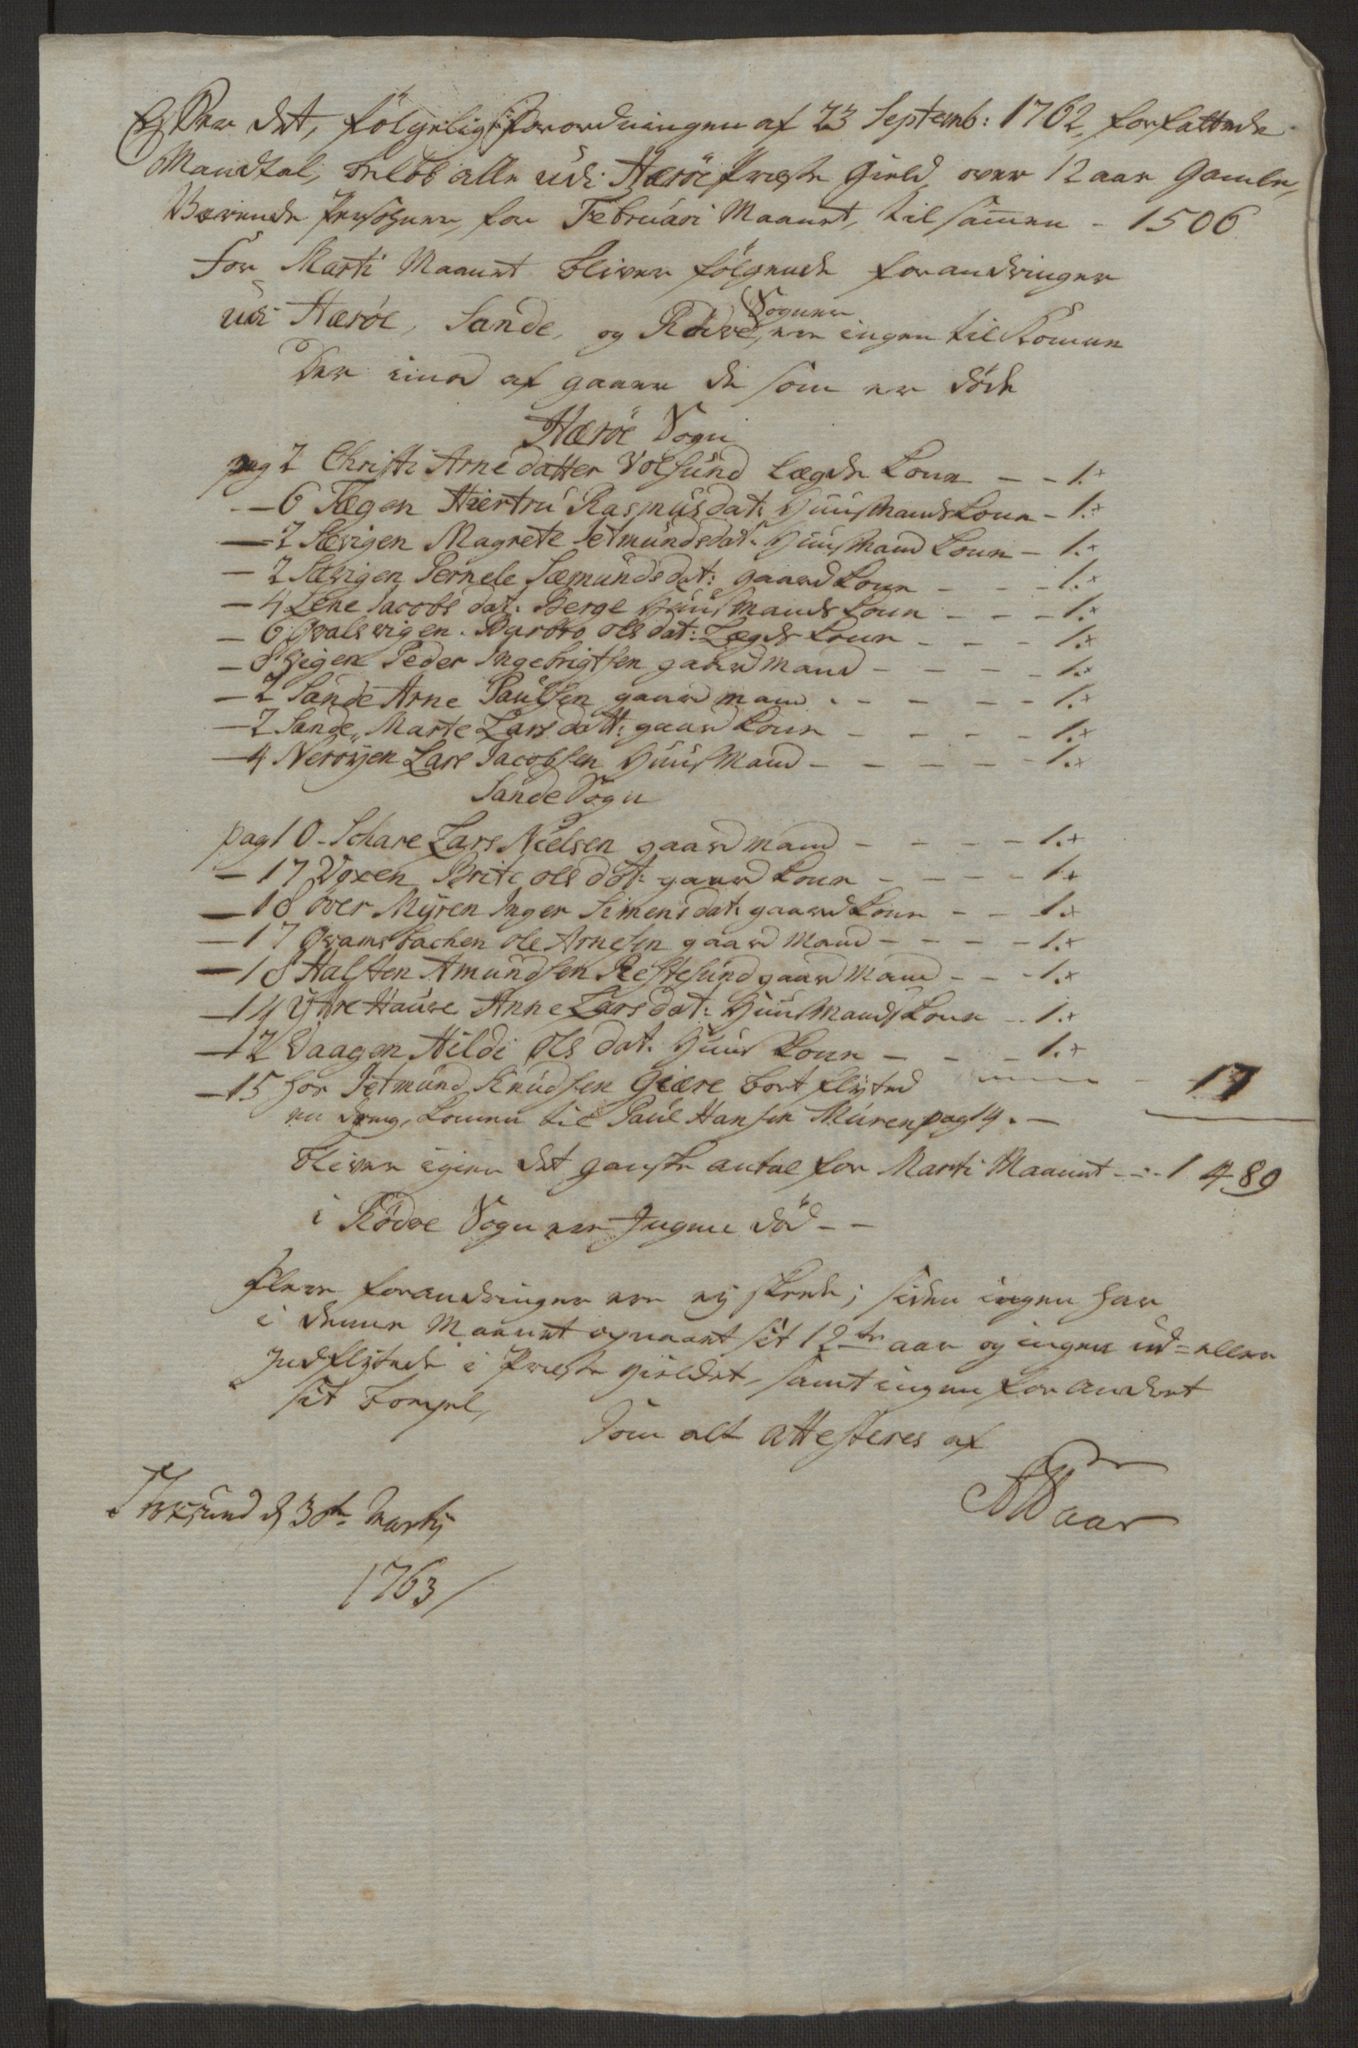 Efter det, følgelig Forordningen af 23 Septemb: 1762, forfattede
Mandtal, beløb alle udi Herröe Præste Gield over 12 aar Gamle,
Værende Persohner, for Februari Maanet, til samen - 1506
For Marti Maanet bliver følgende forandringer
udi Herröe, Sande, og Rödve Sogner, er ingen til Komne
Der imod af gaaer de som er døde
Herröe Sogn
pag 2 Christi Arne datter Volsund Lægds Kone - - 1.
- 6 Tægen Hiertru Rasmusdat: Huusmands Kone - 1.
- 2 Sævigen Magrete Jetmundsdat: Huusmand Kone - 1.
- 2 Sævigen Pernele Sæmundsdat: gaard Kone - - - 1.
- 4 Lene Jacobsdat: Berge Huusmands Kone - - - 1.
- 6 Qvalsvigen Barbro Olsdat: Lægds Kone - - - 1.
- 8 Vigen Peder Ingebrigtsen gaardmand - - - - 1.
- 2 Sande Arne Paulsen gaardmand - - - - - 1.
- 2 Sande, Marte Larsdatt: gaard Kone - - - - 1.
- 4 Nerøyen Lars Jacobsen Huusmand - - - - - 1.
Sande Sogn
pag 10 - Schare Lars Nielsen gaardmand - - - - 1.
- 17 Voxen Brite Olsdat: gaard Kone - - - - 1.
- 18 Over Myren Inger Simensdat: gaard Kone - - 1.
- 17 Qvamsbachen Ole Arnesen gaard Mand - - - - 1.
- 18 Halsten Amundsen Restesund gaard Mand - - - 1.
- 14 Ytre Hauve Anne Larsdat: Huusmands Kone - 1.
- 12 Vaagen Hildi Olsdat: Huus Kone - - - 1.
- 15 hos Jetmund Knudsen Giære bort flyted - 17
en dreng, kommen til Paul Hansen Muren pag 14. -
bliver igien det ganske antal for Marti Maanet - - - 1489
i Rödve Sogn er Ingen død - -
Flere forandringer er ey skeede; siden ingen har
i denne Maanet opnaaet sit 12te aar og ingen ud= eller
Indflytede i Præste gieldet, samt ingen forandret
sit Bopæl,
Som alt attesteres af
d 30te Martij
1763/